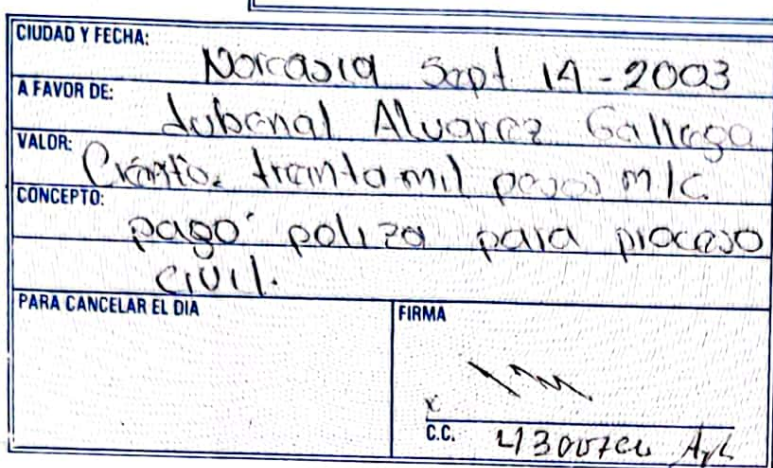 CIUDAD Y FECHA:
Norcasia Sept 14-2003
A FAVOR DE:
Jubenal Alvarez Gallego
VALOR:
treinta mil pesos m/c
CONCEPTO:
pago poliza para proceso
civil.
PARA CANCELAR EL DIA
FIRMA
x
C.C.